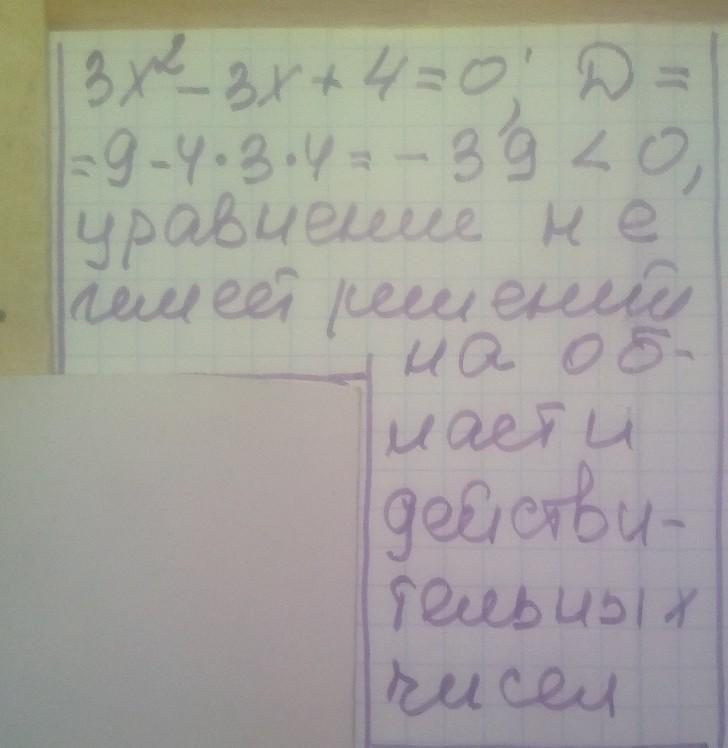 3x² - 3x + 4 = 0; D =
= 9 - 4 · 3 · 4 = - 39 < 0,
уравнение не
имеет решений
на об-
ласти
действи-
тельных
чисел